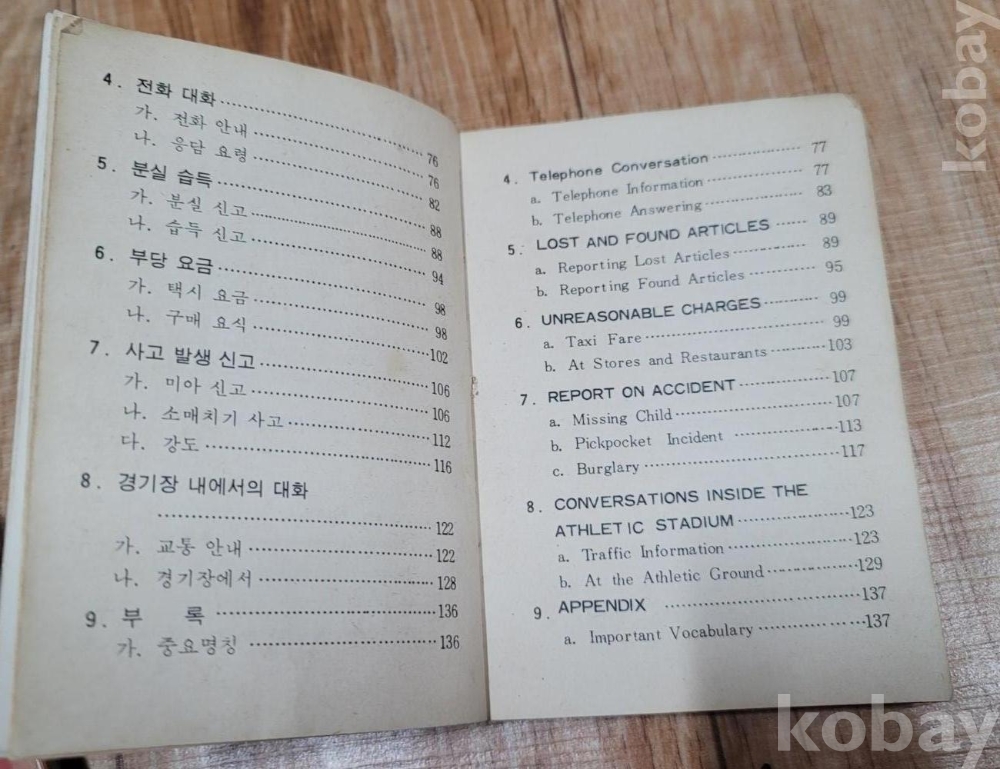 4. 전화 대화 ················ 76
가. 전화 안내 ················ 76
나. 응답 요령 ················ 82
5. 분실 습득 ················ 88
가. 분실 신고 ················ 88
나. 습득 신고 ················ 94
6. 부당 요금 ················ 98
가. 택시 요금 ················ 98
나. 구매 요식 ················ 102
7. 사고 발생 신고 ················ 106
가. 미아 신고 ················ 106
나. 소매치기 사고 ················ 112
다. 강도 ················ 116
8. 경기장 내에서의 대화
················ 122
가. 교통 안내 ················ 122
나. 경기장에서 ················ 128
9. 부 록 ················ 136
가. 중요명칭 ················ 136
4. Telephone Conversation ················ 77
a. Telephone Information ················ 77
b. Telephone Answering ················ 83
5. LOST AND FOUND ARTICLES ······ 89
a. Reporting Lost Articles ················ 89
b. Reporting Found Articles ················ 95
6. UNREASONABLE CHARGES ················ 99
a. Taxi Fare ················ 99
b. At Stores and Restaurants ················ 103
7. REPORT ON ACCIDENT ················ 107
a. Missing Child ················ 107
b. Pickpocket Incident ················ 113
c. Burglary ················ 117
8. CONVERSATIONS INSIDE THE
ATHLETIC STADIUM ················ 123
a. Traffic Information ················ 123
b. At the Athletic Ground ················ 129
9. APPENDIX ················ 137
a. Important Vocabulary ················ 137
kobay
kobay